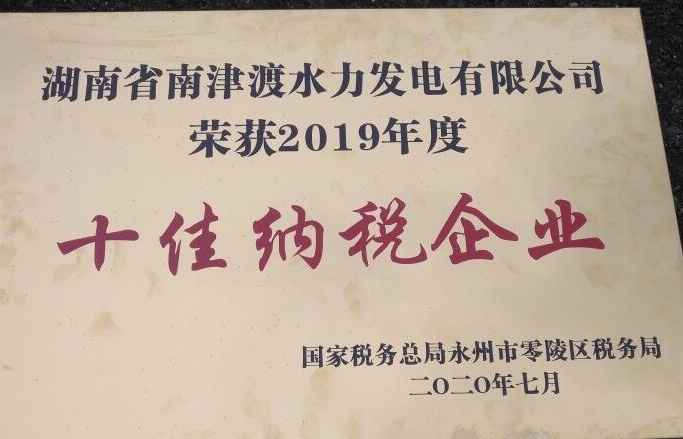 湖南省南津渡水力发电有限公司
荣获2019年度
十佳纳税企业
国家税务总局永州市零陵区税务局
二〇二〇年七月